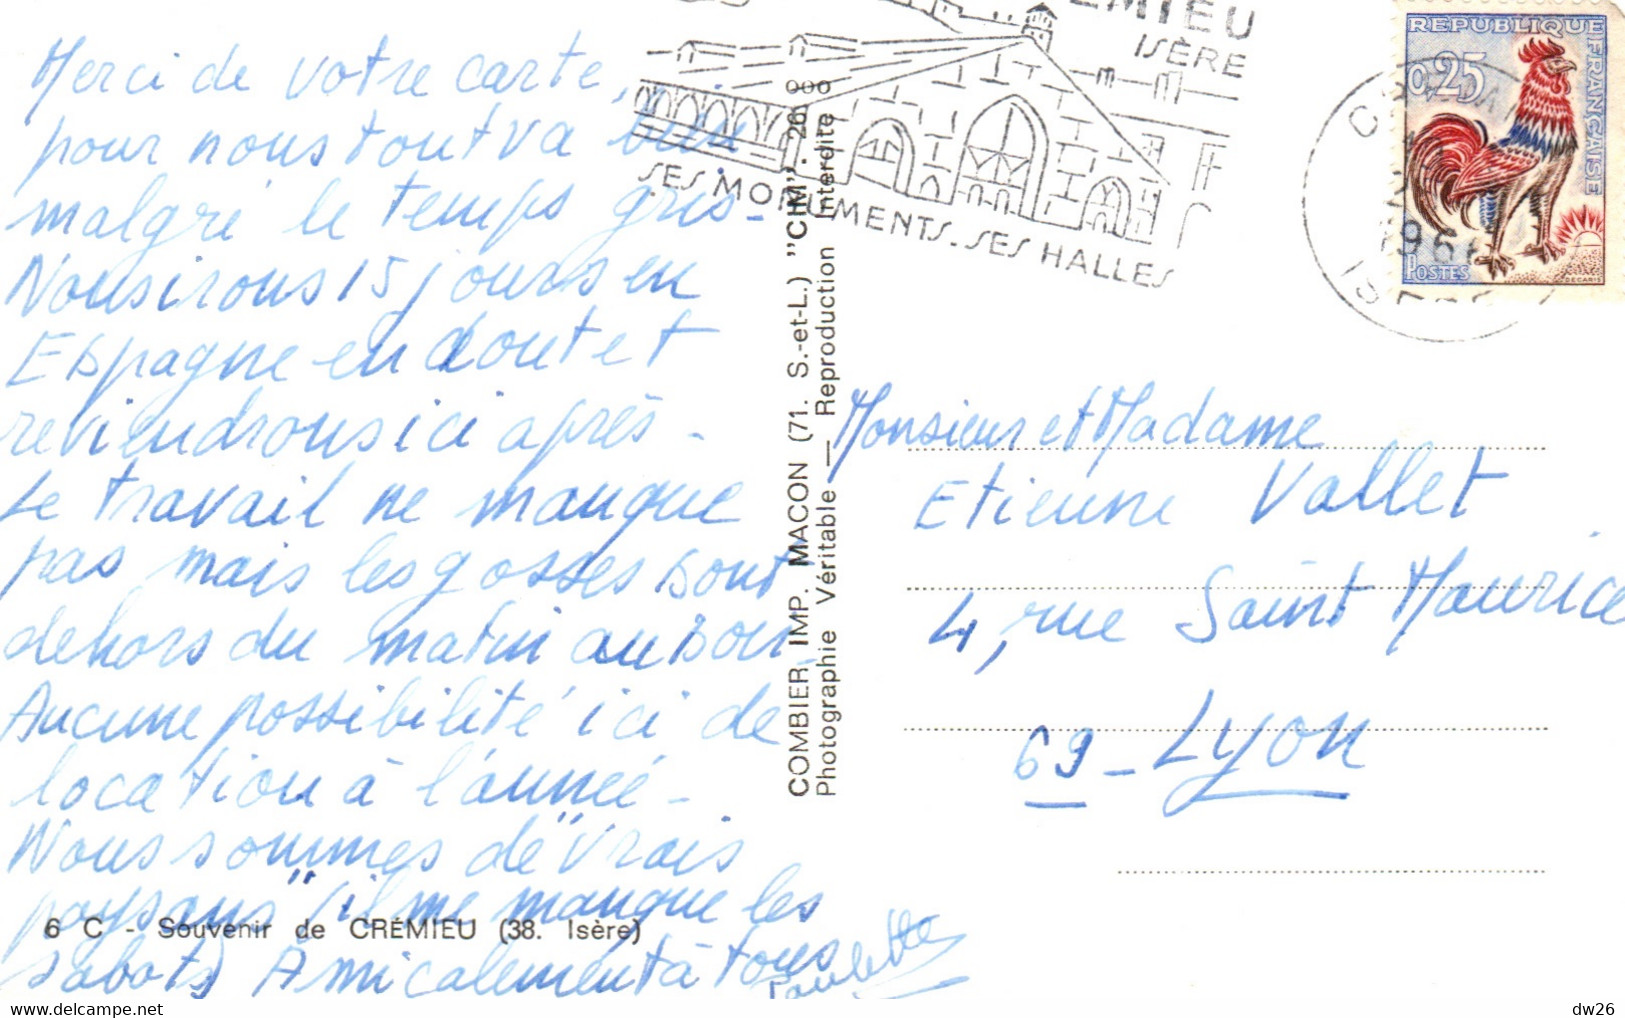 Merci de votre carte,
pour nous tout va bien
malgré le temps gris -
Nous irons 15 jours en
Espagne en Aout et
reviendrons ici après -
Le travail ne manque
pas mais les gosses sont
dehors du matin au soir -
Aucune possibilité ici de
location à l'année -
Nous sommes de "vrais
paysans" (il me manque les
sabots) Amicalement à tous
Paulette
6 C - Souvenir de CRÉMIEU (38. Isère)
COMBIER IMP. MACON (71. S.-et-L.) "CIM"
Photographie Véritable — Reproduction Interdite
ISÈRE
SES MONUMENTS - SES HALLES
REPUBLIQUE FRANÇAISE
0,25
POSTES
DECARIS
Monsieur et Madame
Etienne Vallet
4, rue Saint Maurice
69 - Lyon
dw26